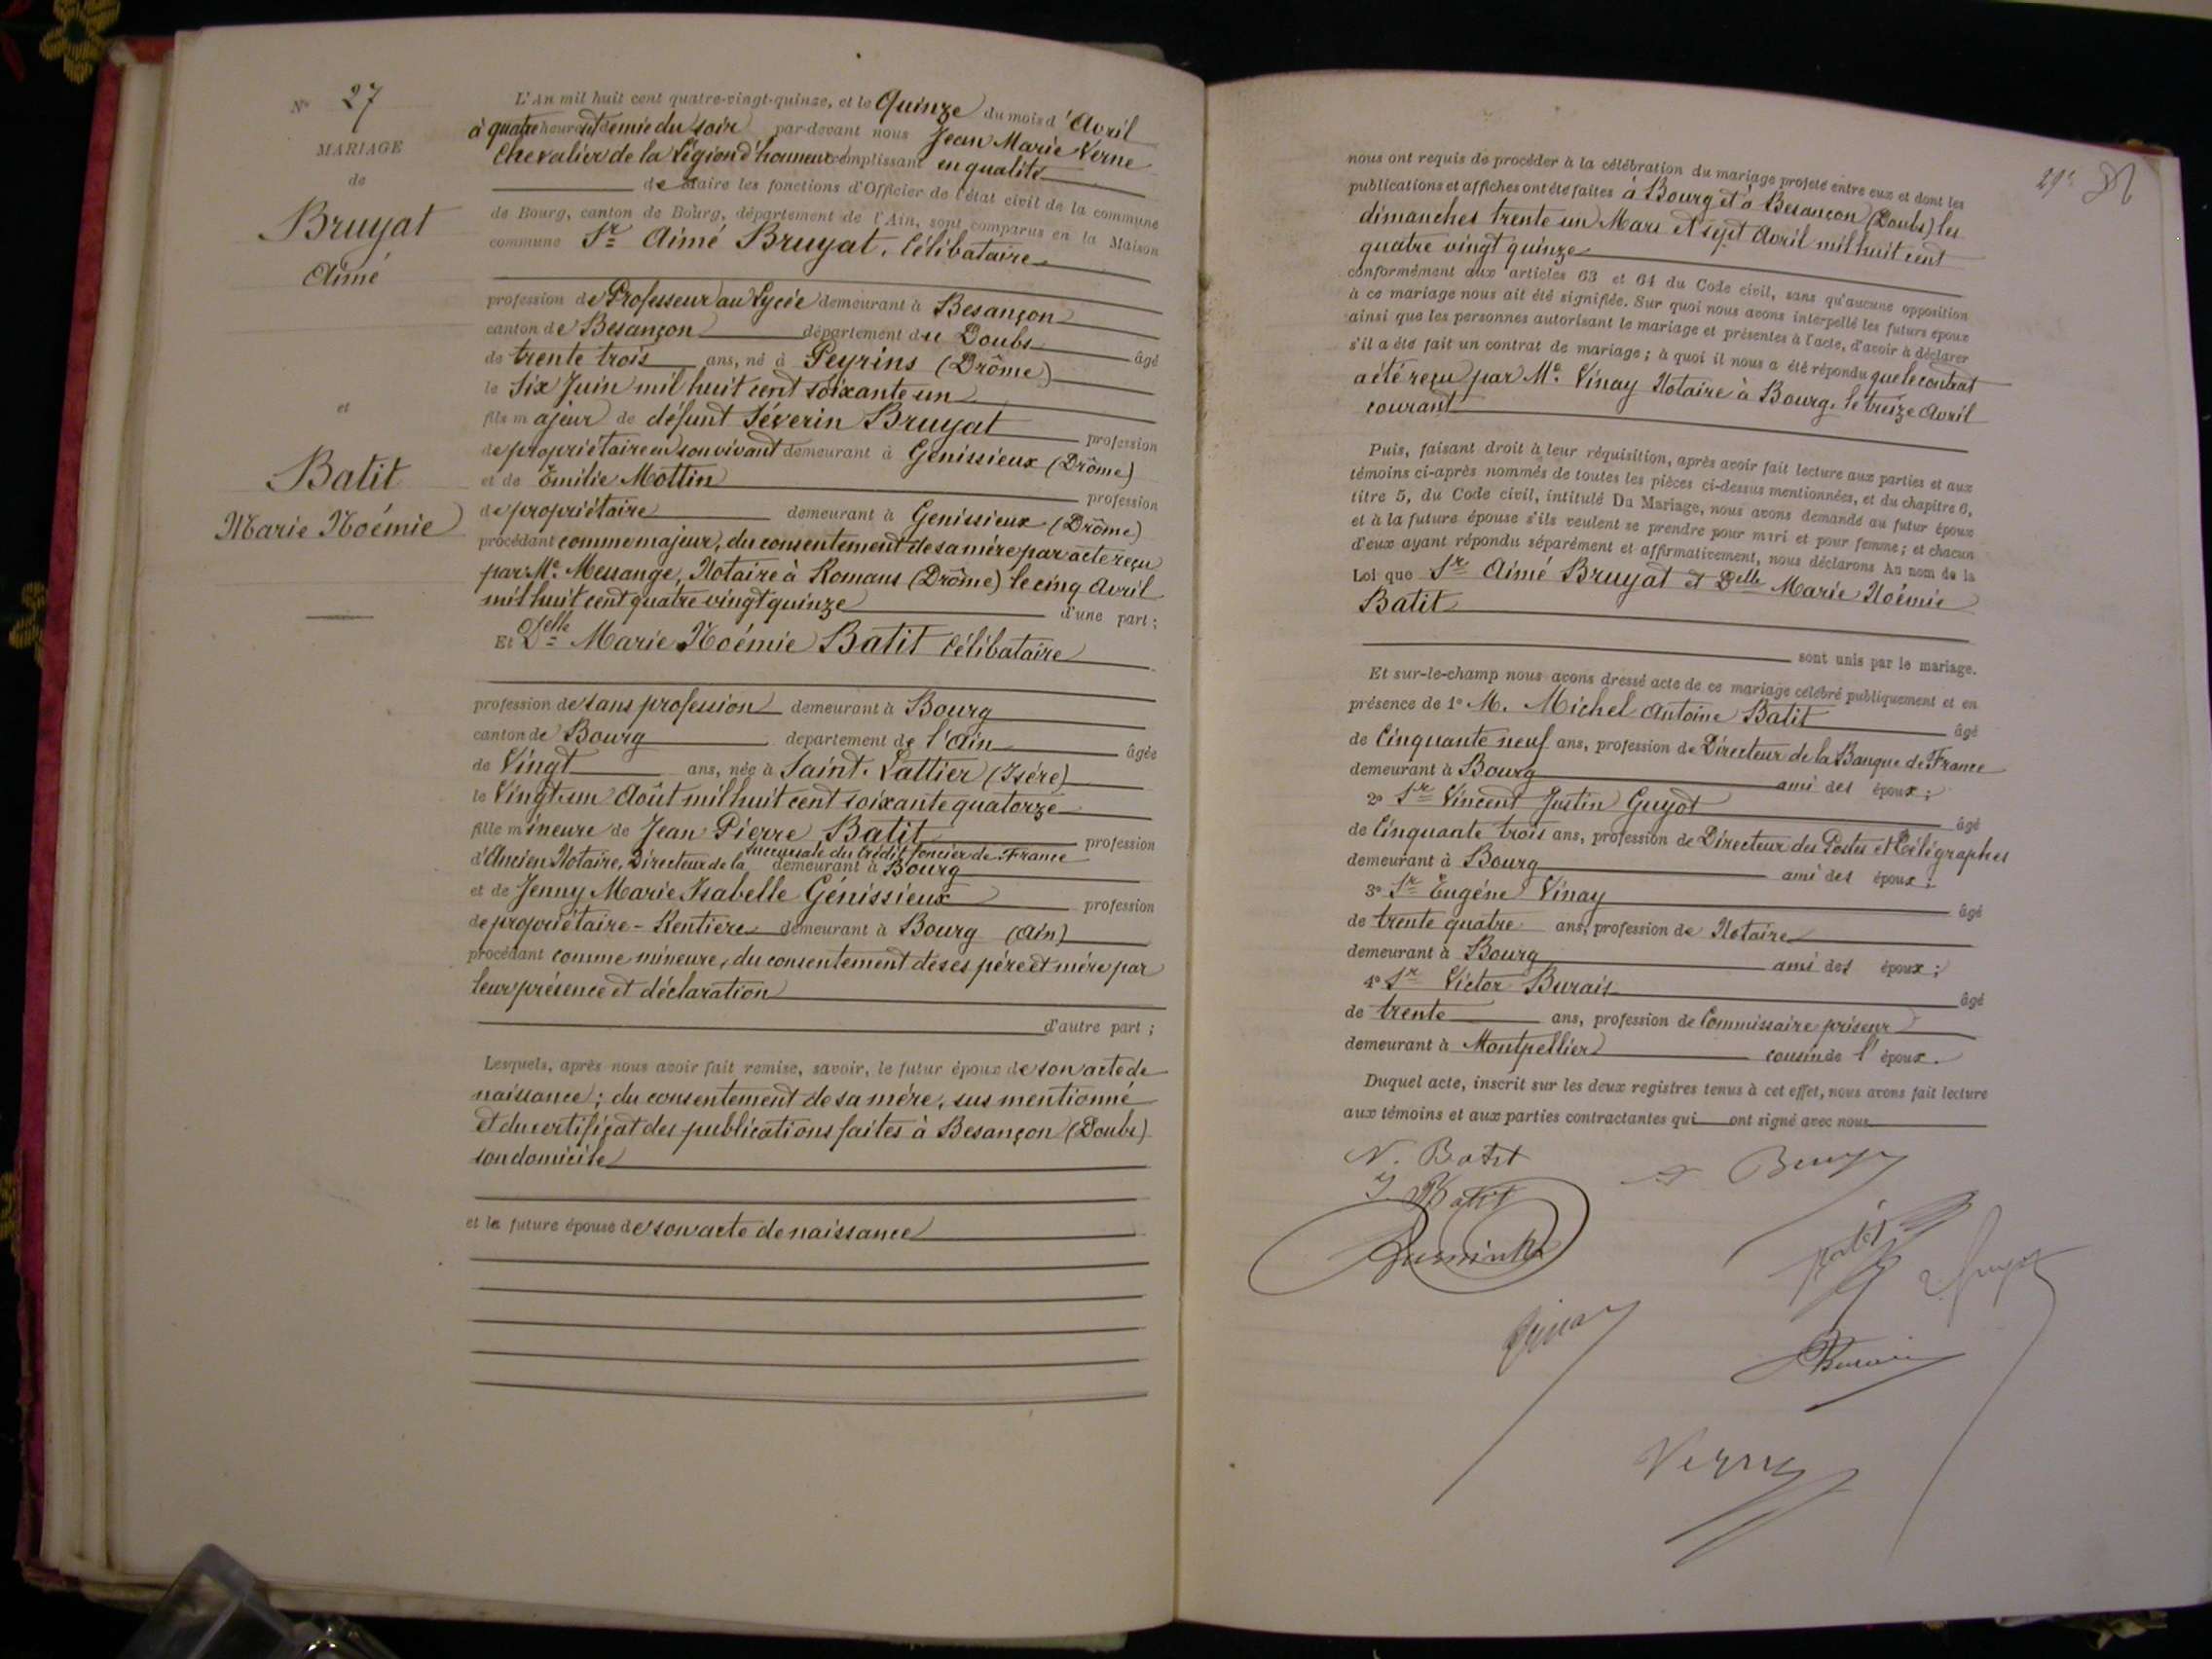 N° 27
MARIAGE
de
Bruyat
Aimé
et
Batit
Marie Noémie
L'An mil huit cent quatre-vingt-quinze, et le Quinze du mois d'Avril
à quatre heures et demie du soir par-devant nous Jean Marie Verne
Chevalier de la Légion d'honneur remplissant en qualité
de Maire les fonctions d'Officier de l'état civil de la commune
de Bourg, canton de Bourg, département de l'Ain, sont comparus en la Maison
commune Sr Aimé Bruyat, Célibataire
profession de Professeur au Lycée demeurant à Besançon
canton de Besançon département du Doubs âgé
de trente trois ans, né à Peyrins (Drôme)
le Six Juin mil huit cent soixante un
fils majeur de défunt Séverin Bruyat profession
de propriétaire en son vivant demeurant à Génissieux (Drôme)
et de Emilie Mottin profession
de propriétaire demeurant à Genissieux (Drôme)
procédant comme majeur, du consentement de sa mère par acte reçu
par Me Messange, Notaire à Romans (Drôme) le cinq Avril
mil huit cent quatre vingt quinze d'une part ;
Et Delle Marie Noémie Batit Célibataire
profession de sans profession demeurant à Bourg
canton de Bourg département de l'Ain âgée
de Vingt ans, née à Saint-Vallier (Isère)
le Vingt-un Août mil huit cent soixante quatorze
fille mineure de Jean Pierre Batit profession
d'Ancien Notaire, Directeur de la succursale du Crédit foncier de France demeurant à Bourg
et de Jenny Marie Isabelle Génissieux profession
de propriétaire-Rentière demeurant à Bourg (Ain)
procédant comme mineure, du consentement de ses père et mère par
leur présence et déclaration
d'autre part ;
Lesquels, après nous avoir fait remise, savoir, le futur époux de son acte de
naissance ; du consentement de sa mère, sus mentionné
et du certificat des publications faites à Besançon (Doubs)
son domicile
et la future épouse de son acte de naissance
29e
nous ont requis de procéder à la célébration du mariage projeté entre eux et dont les
publications et affiches ont été faites à Bourg et à Besançon (Doubs) les
dimanches trente un Mars et sept Avril mil huit cent
quatre vingt quinze
conformément aux articles 63 et 64 du Code civil, sans qu'aucune opposition
à ce mariage nous ait été signifiée. Sur quoi nous avons interpellé les futurs époux
ainsi que les personnes autorisant le mariage et présentes à l'acte, d'avoir à déclarer
s'il a été fait un contrat de mariage ; à quoi il nous a été répondu que le contrat
a été reçu par Me Vinay Notaire à Bourg, le treize Avril
courant
Puis, faisant droit à leur réquisition, après avoir fait lecture aux parties et aux
témoins ci-après nommés de toutes les pièces ci-dessus mentionnées, et du chapitre 6,
titre 5, du Code civil, intitulé Du Mariage, nous avons demandé au futur époux
et à la future épouse s'ils veulent se prendre pour mari et pour femme ; et chacun
d'eux ayant répondu séparément et affirmativement, nous déclarons Au nom de la
Loi que Sr Aimé Bruyat et Delle Marie Noémie
Batit
sont unis par le mariage.
Et sur-le-champ nous avons dressé acte de ce mariage célébré publiquement et en
présence de 1° M. Michel Antoine Batit âgé
de Cinquante neuf ans, profession de Directeur de la Banque de France
demeurant à Bourg ami des époux ;
2° Sr Vincent Justin Guyot âgé
de Cinquante trois ans, profession de Directeur des Postes et Télégraphes
demeurant à Bourg ami des époux ;
3° Sr Eugène Vinay âgé
de trente quatre ans, profession de Notaire
demeurant à Bourg ami des époux ;
4° Sr Victor Burais âgé
de trente ans, profession de Commissaire priseur
demeurant à Montpellier cousin de l'époux.
Duquel acte, inscrit sur les deux registres tenus à cet effet, nous avons fait lecture
aux témoins et aux parties contractantes qui ont signé avec nous
N. Batit
J. Batit
Vinay
Verne